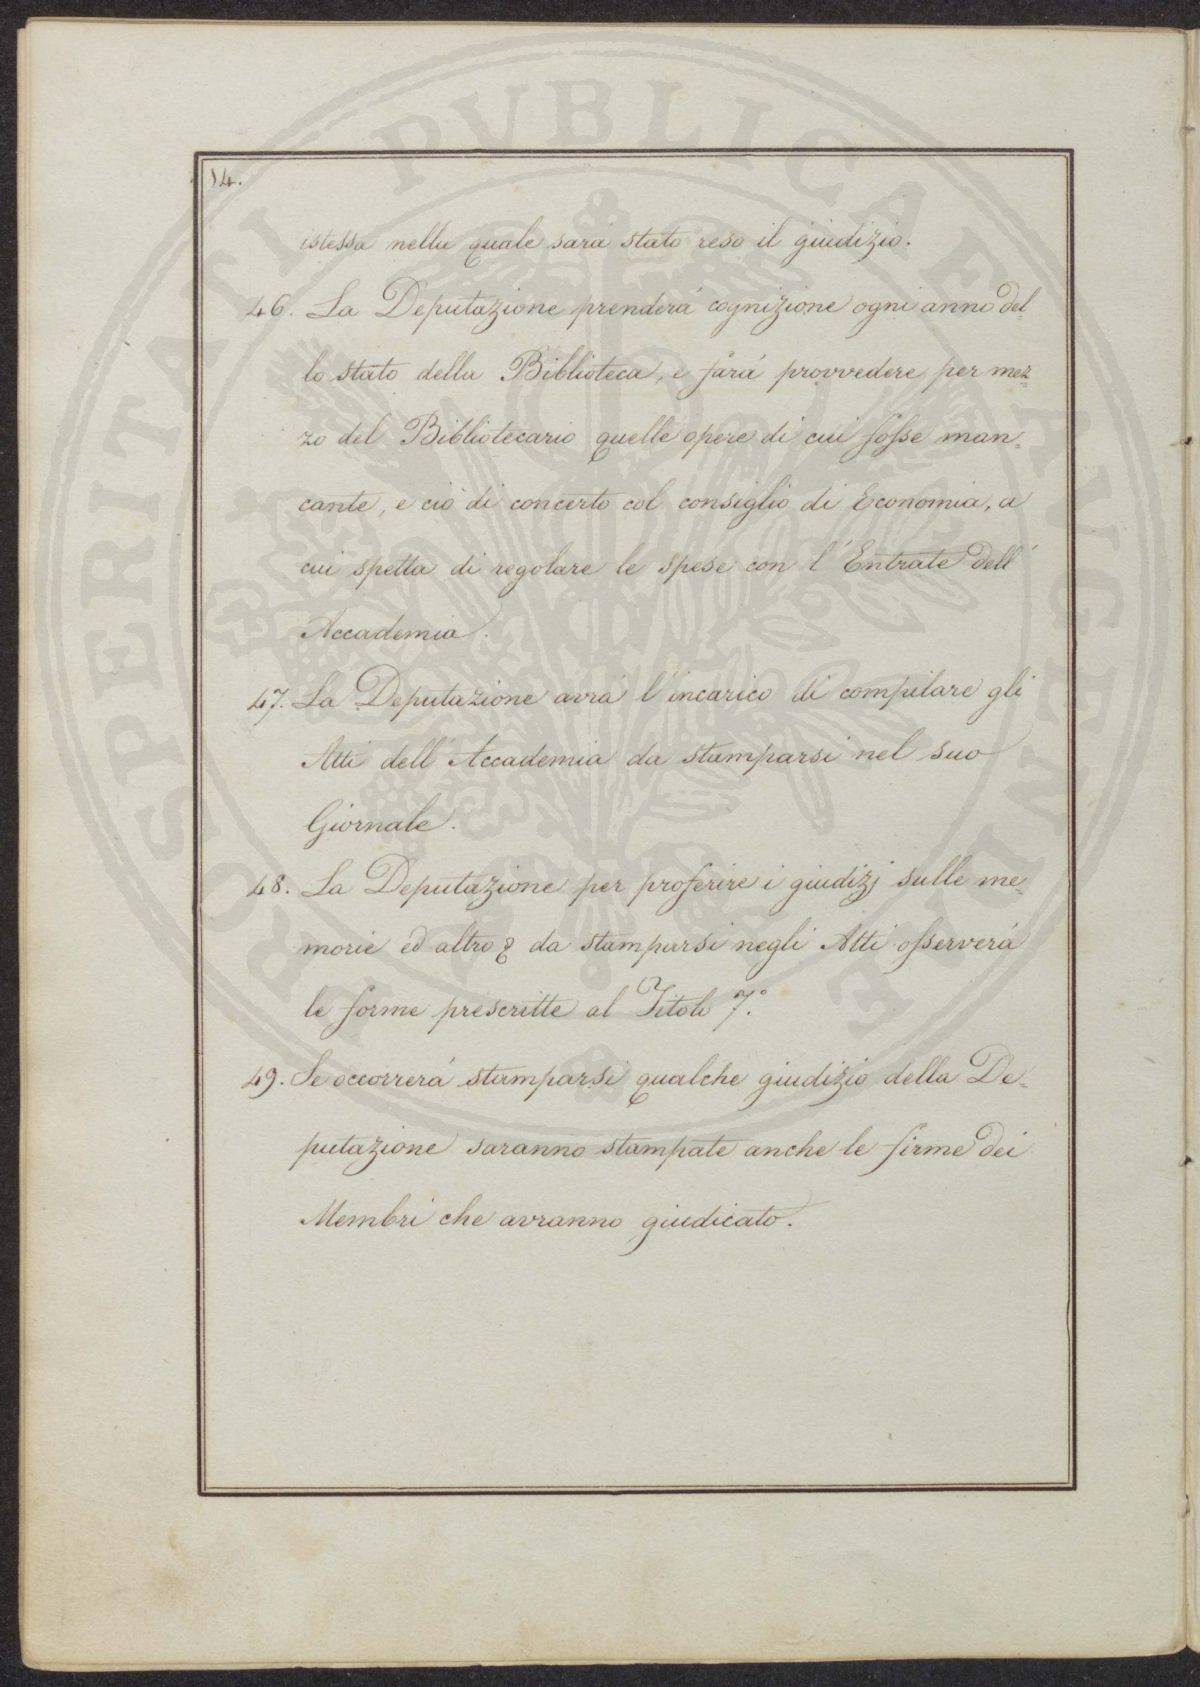 14.
istessa nella quale sarà stato reso il giudizio.
46. La Deputazione prenderà cognizione ogni anno del-
lo stato della Biblioteca, e farà provvedere per mez=
zo del Bibliotecario quelle opere di cui fosse man=
cante, e ciò di concerto col consiglio di Economia, a
cui spetta di regolare le spese con l'Entrate dell'
Accademia.
47. La Deputazione avrà l'incarico di compilare gli
Atti dell'Accademia da stamparsi nel suo
Giornale.
48. La Deputazione per proferire i giudizj sulle me=
morie ed altro da stamparsi negli Atti osserverà
le forme prescritte al Titolo 7.°
49. Se occorrerà stamparsi qualche giudizio della De=
putazione saranno stampate anche le firme dei
Membri che avranno giudicato.
PROSPERITATI PVBLICAE AVGENDAE